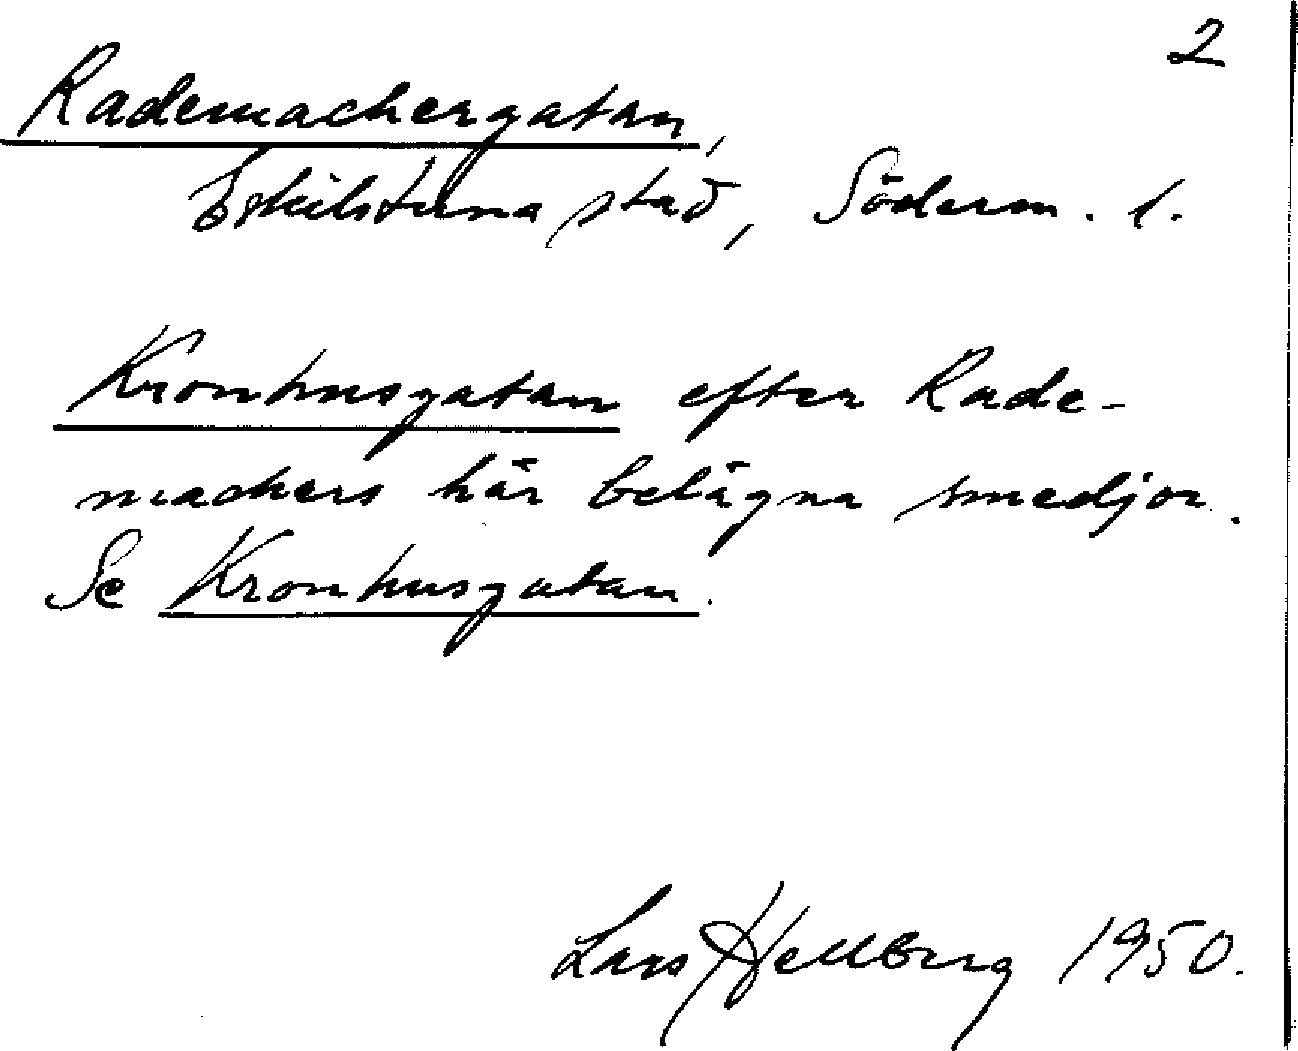 2
Rademachergatan,
Eskilstuna stad, Söderm. l.
Kronhusgatan efter Rade-
machers här belägna smedjor.
Se Kronhusgatan.
Lars Hellberg 1950.